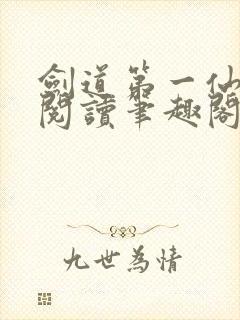 劍道第一仙
閱讀筆趣閣
九世為情